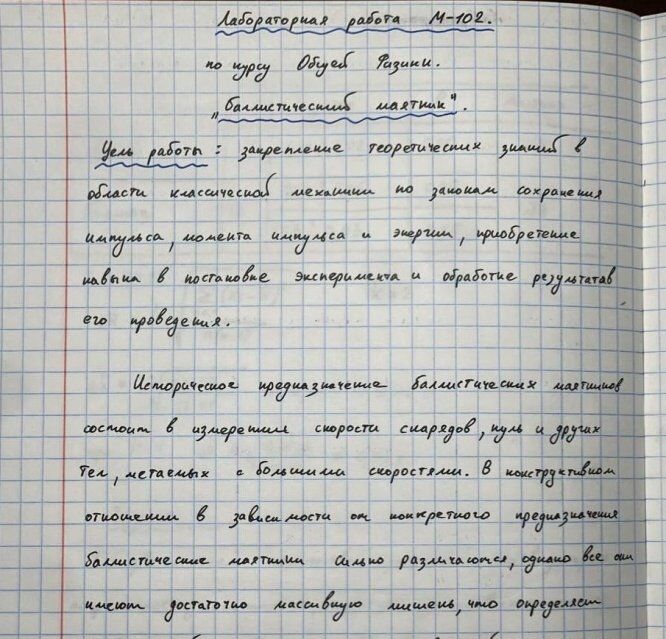 Лабораторная работа М-102.
по курсу Общей Физики.
„Баллистический маятник".
Цель работы: закрепление теоретических знаний в
области классической механики по законам сохранения
импульса, момента импульса и энергии, приобретение
навыка в постановке эксперимента и обработке результатав
его проведения.
Историческое предназначение баллистических маятников
состоит в измерении скорости снарядов, пуль и других
тел, метаемых с большими скоростями. В конструктивном
отношении в зависимости от конкретного предназначения
баллистические маятники сильно различаются, однако все они
имеют достаточно массивную мишень, что определяет